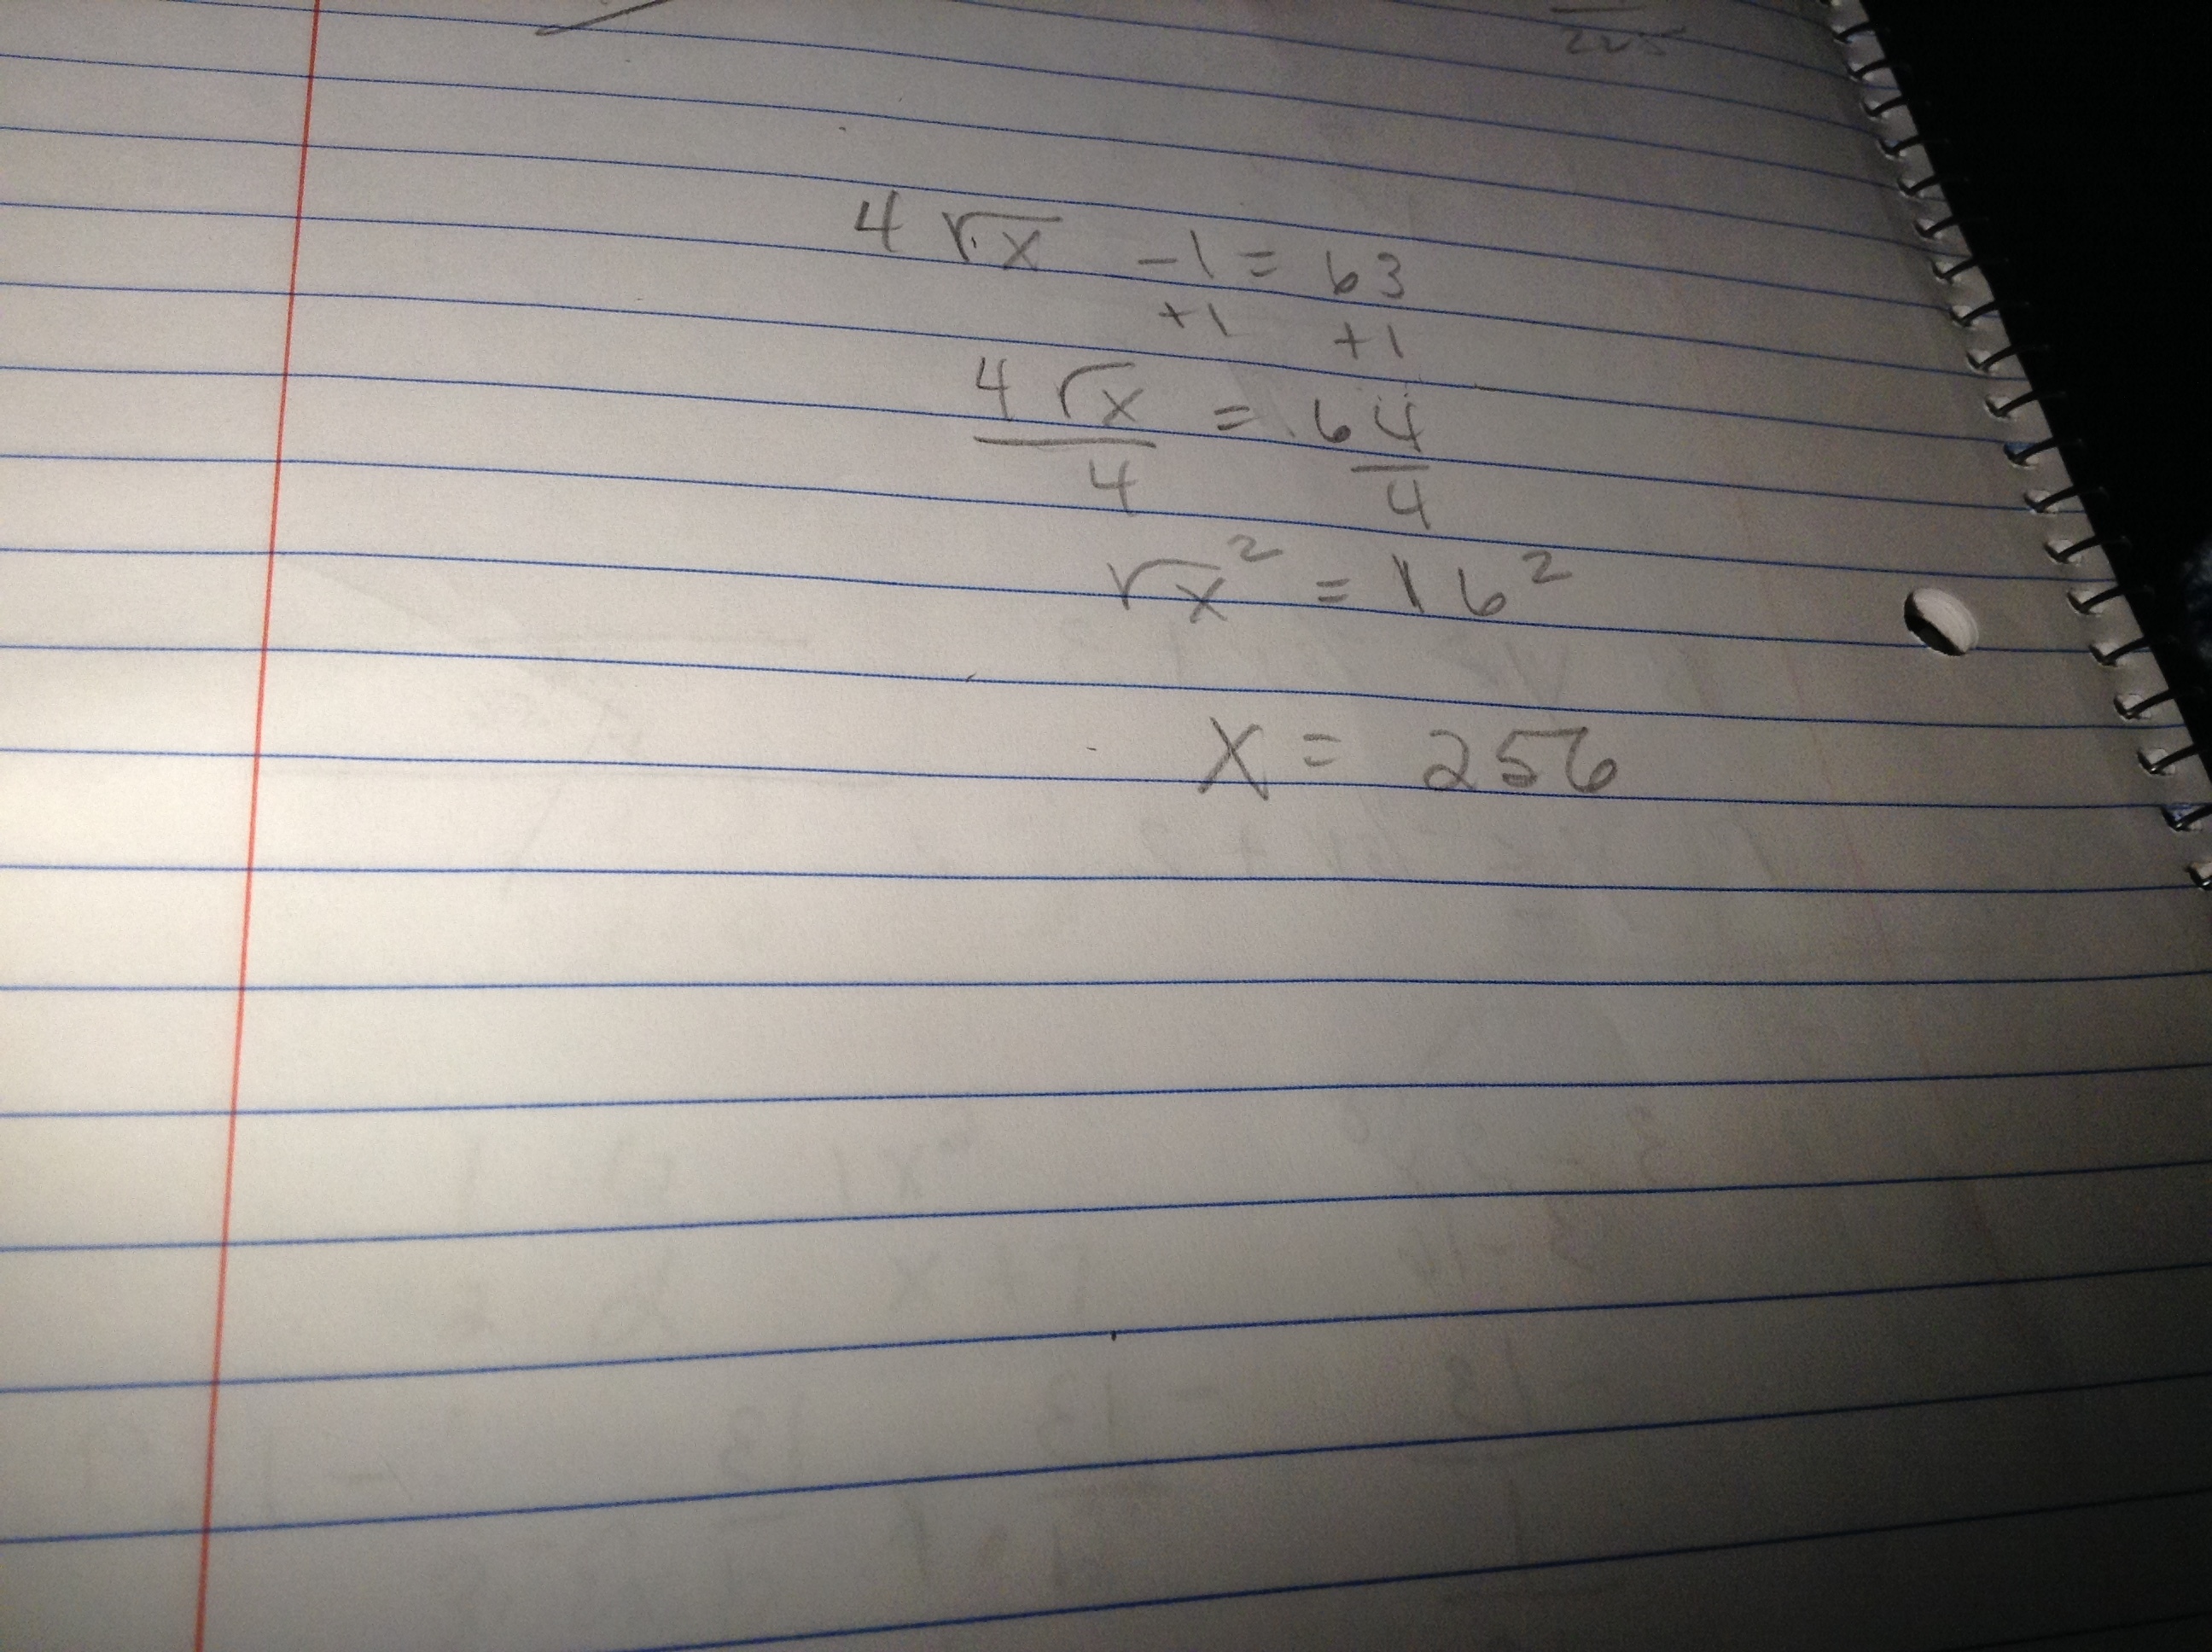 225
4 √x - 1 = 63
+1 +1
4 √x = 64
4 4
√x² = 16²
x = 256